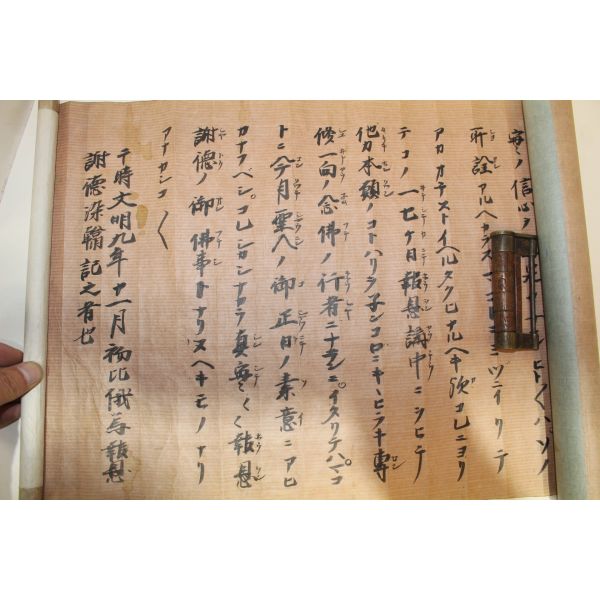 実ノ信心ヲ ヒト〱ハソノ
所詮アルヘカラス ニツイリテ
アカオチストイヘルタクヒナルヘキ歟コレニヨリ
テコノ一七ケ日報恩講中ニシヒテ
他力本願ノコトハリヲ子ンコロニキヽヒラキ専
修一向ノ念佛ノ行者ニナランニイタリテハマコ
トニ今月聖人ノ御正日ノ素意ニアヒ
カナフヘシコレシカシナカラ真実〱報恩
謝徳ノ御佛事トナリヌヘキモノナリ
アナカシコ〱
于時文明九年十一月初比俄為報恩
謝徳染翰記之者也